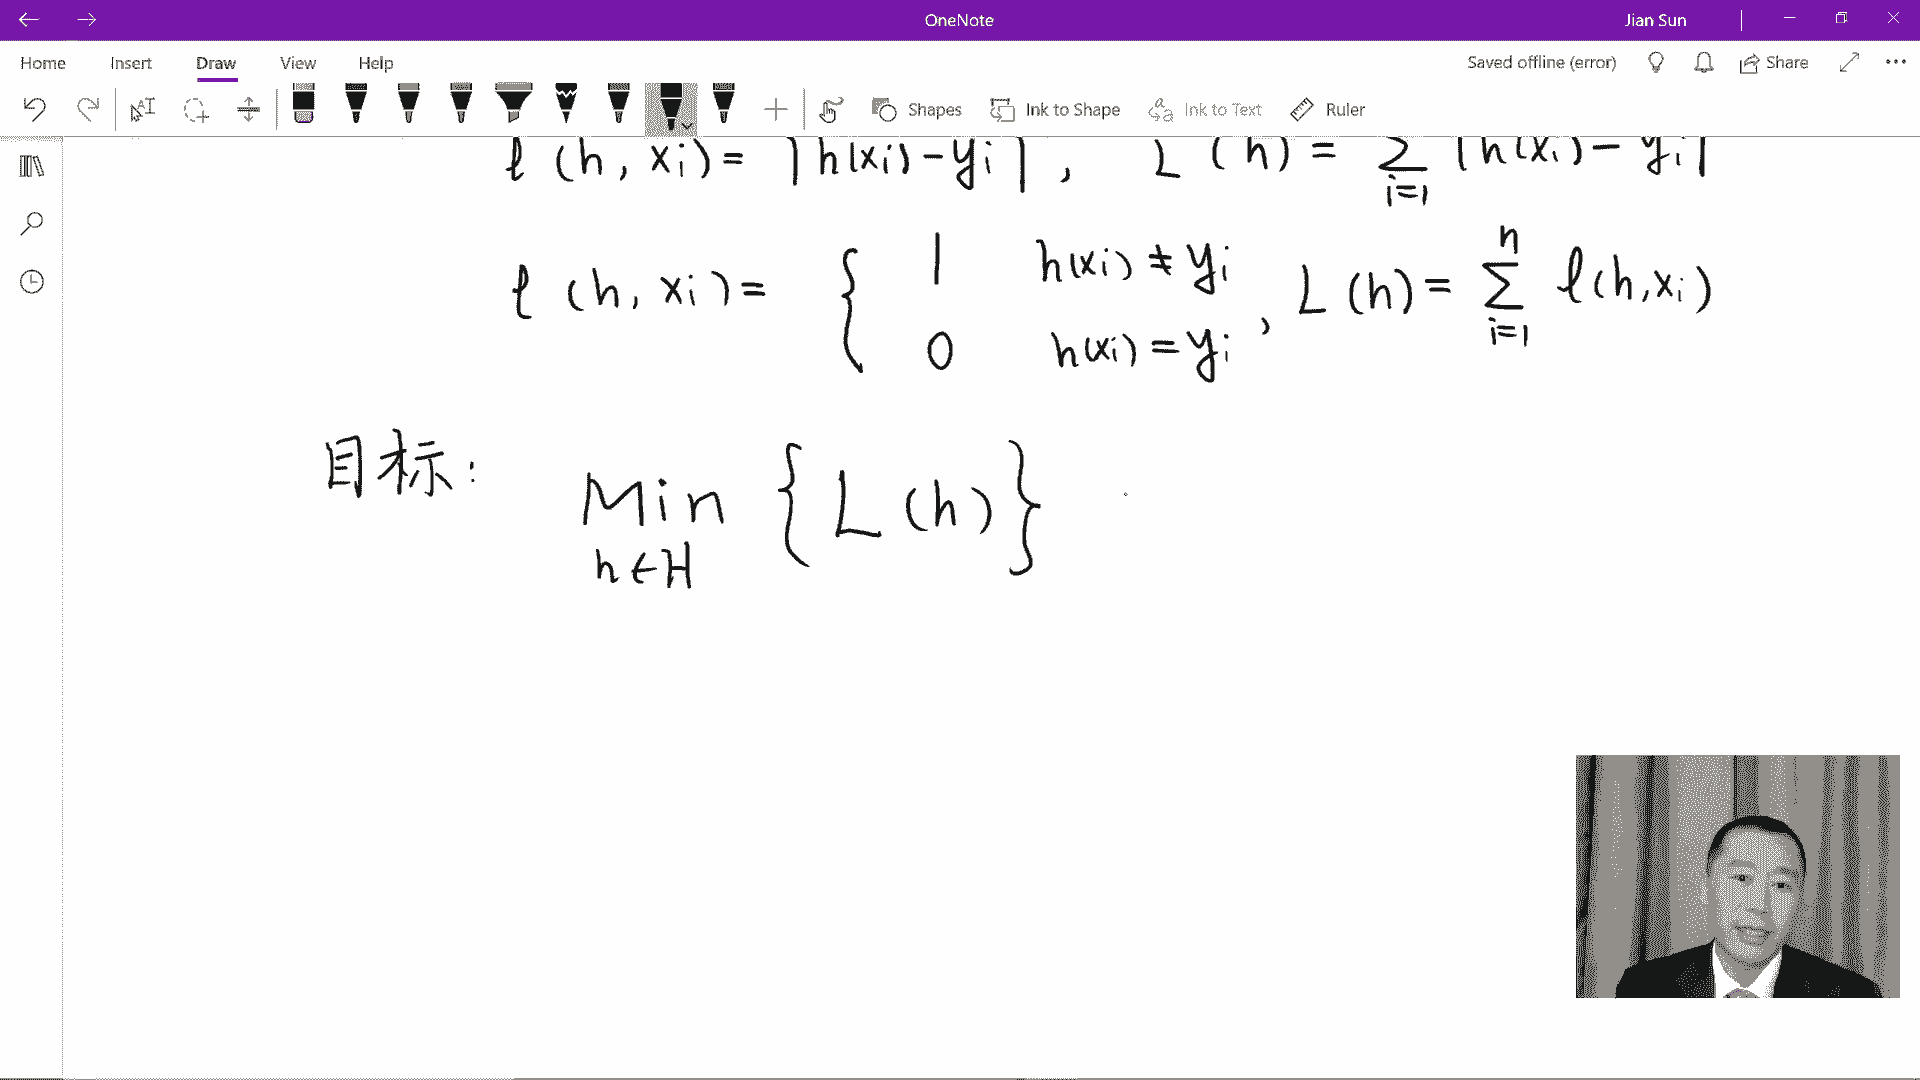 OneNote
Jian Sun
Home Insert Draw View Help
Saved offline (error) Share
Shapes Ink to Shape Ink to Text Ruler
ℓ(h, xi) = |h(xi) - yi|, L(h) = ∑ i=1 |h(xi) - yi|
ℓ(h, xi) = { 1 h(xi) ≠ yi
0 h(xi) = yi , L(h) = ∑ i=1 n ℓ(h, xi)
目标: Min {L(h)}
h∈H